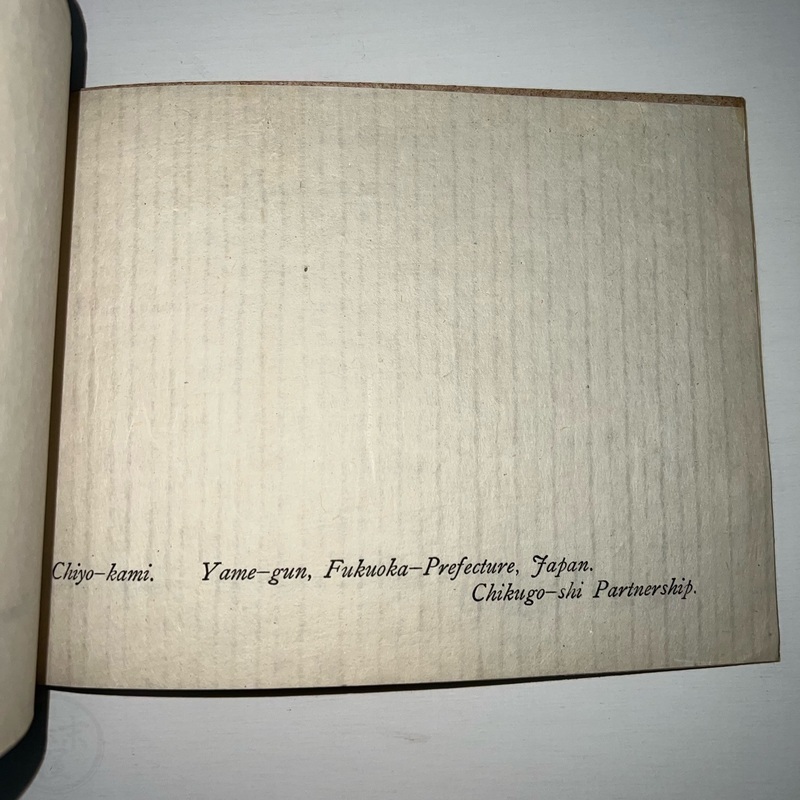 Chiyo–kami. Yame–gun, Fukuoka–Prefecture, Japan.
Chikugo–shi Partnership.